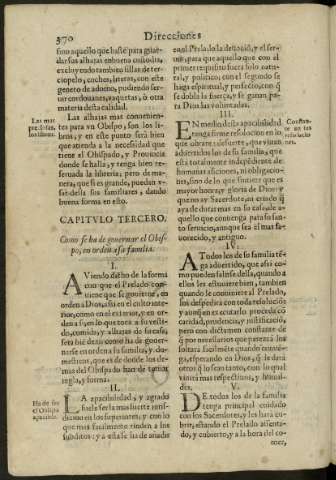 370
Direcciones
sino aquello que baste para guar-
dar sus alhajas en buena custodia,
excluyendo tambien sillas de ter-
ciopelo, coches, literas, con este
genero de adorno, pudiendo ser-
uir cordouanes, vaquetas, ò otra
materia desta calidad.
Las mas
preciosas,
los libros.
Las alhajas mas conuenien-
tes para vn Obispo, son los li-
bros, y en este punto será bien
que atienda à la necessidad que
tiene el Obispado, y Prouincia
donde se halla, y tenga bien re-
seruada la libreria; pero de ma-
nera, que si es grande, puedan v-
sar della sus familiares, dando
buena forma en esto.
CAPITVLO TERCERO.
Como se ha de gouernar el Obis-
po, en orden à su familia.
I.
AViendo dicho de la forma
con que el Prelado con-
uiene que se gouierne, en
orden à Dios, assi en el culto inte-
rior, como en el exterior, y en or-
den a si, en lo que toca à su vesti-
do, comida, y alhajas de su casa,
será bié dezir como ha de gouer-
narse en orden a su familia, y do-
mesticos, que es de donde los de-
mas del Obispado han de tomar
regla, y forma.
II.
Ha de ser
el Obispo
apacible.
LA apacibilidad, y agrado
suele ser la mas fuerte juris-
diccion en los superiores, y con lo
que mas facilmente rinden a los
subditos: y a esta se ha de añadir
en el Prelado la deuoció, y el ser-
uir, para que aquello que con el
primer requisito fuera solo natu-
ral, y politico, con el segundo se
haga espiritual, y perfecto, con q̃
se doble la fuerça, y se ganen pa-
ra Dios las voluntades.
III.
Constan-
te en las
resolucio
nes.
EN medio desta apacibilidad,
tenga firme resolucion en lo
que obrare, &
aduertidos los de su familia, que
està totalmente indepẽdente de
humanas aficiones, ni obligacio-
nes, sino de lo que sintiere que es
mayor honra, y gloria de Dios: y
que no ay Sacerdote, ni criado q̃
aya de durar mas en su casa, de a-
quello que contenga para su san-
to seruicio, aunque sea el mas fa-
uorecido, y antiguo.
IV.
A Todos los de su familia tẽ-
ga aduertido, que assi co-
mo pueden salirse della, quando a
ellos les estuuiere bien, tambien
quando le conuiniere al Prelado,
los despedirá con toda resoluciõ
y aunque en executarlo proceda cõ
caridad, prudencia, y justificaciõ,
pero con dictamen constante de
q̃ por necessarios que parezcá los
sustituirá facilmente quando conuen-
ga, esperando en Dios, q̃ le dará
otros q̃ le siruan tanto, con lo qual
viuirá mas respectiuos, y humil-
des.
V.
DE todos los de la familia
tenga principal cuidado
con los Sacerdotes, y les hará cu-
brir, estando el Prelado assenta-
do, y cubierto, y a la hora del co-
mer,